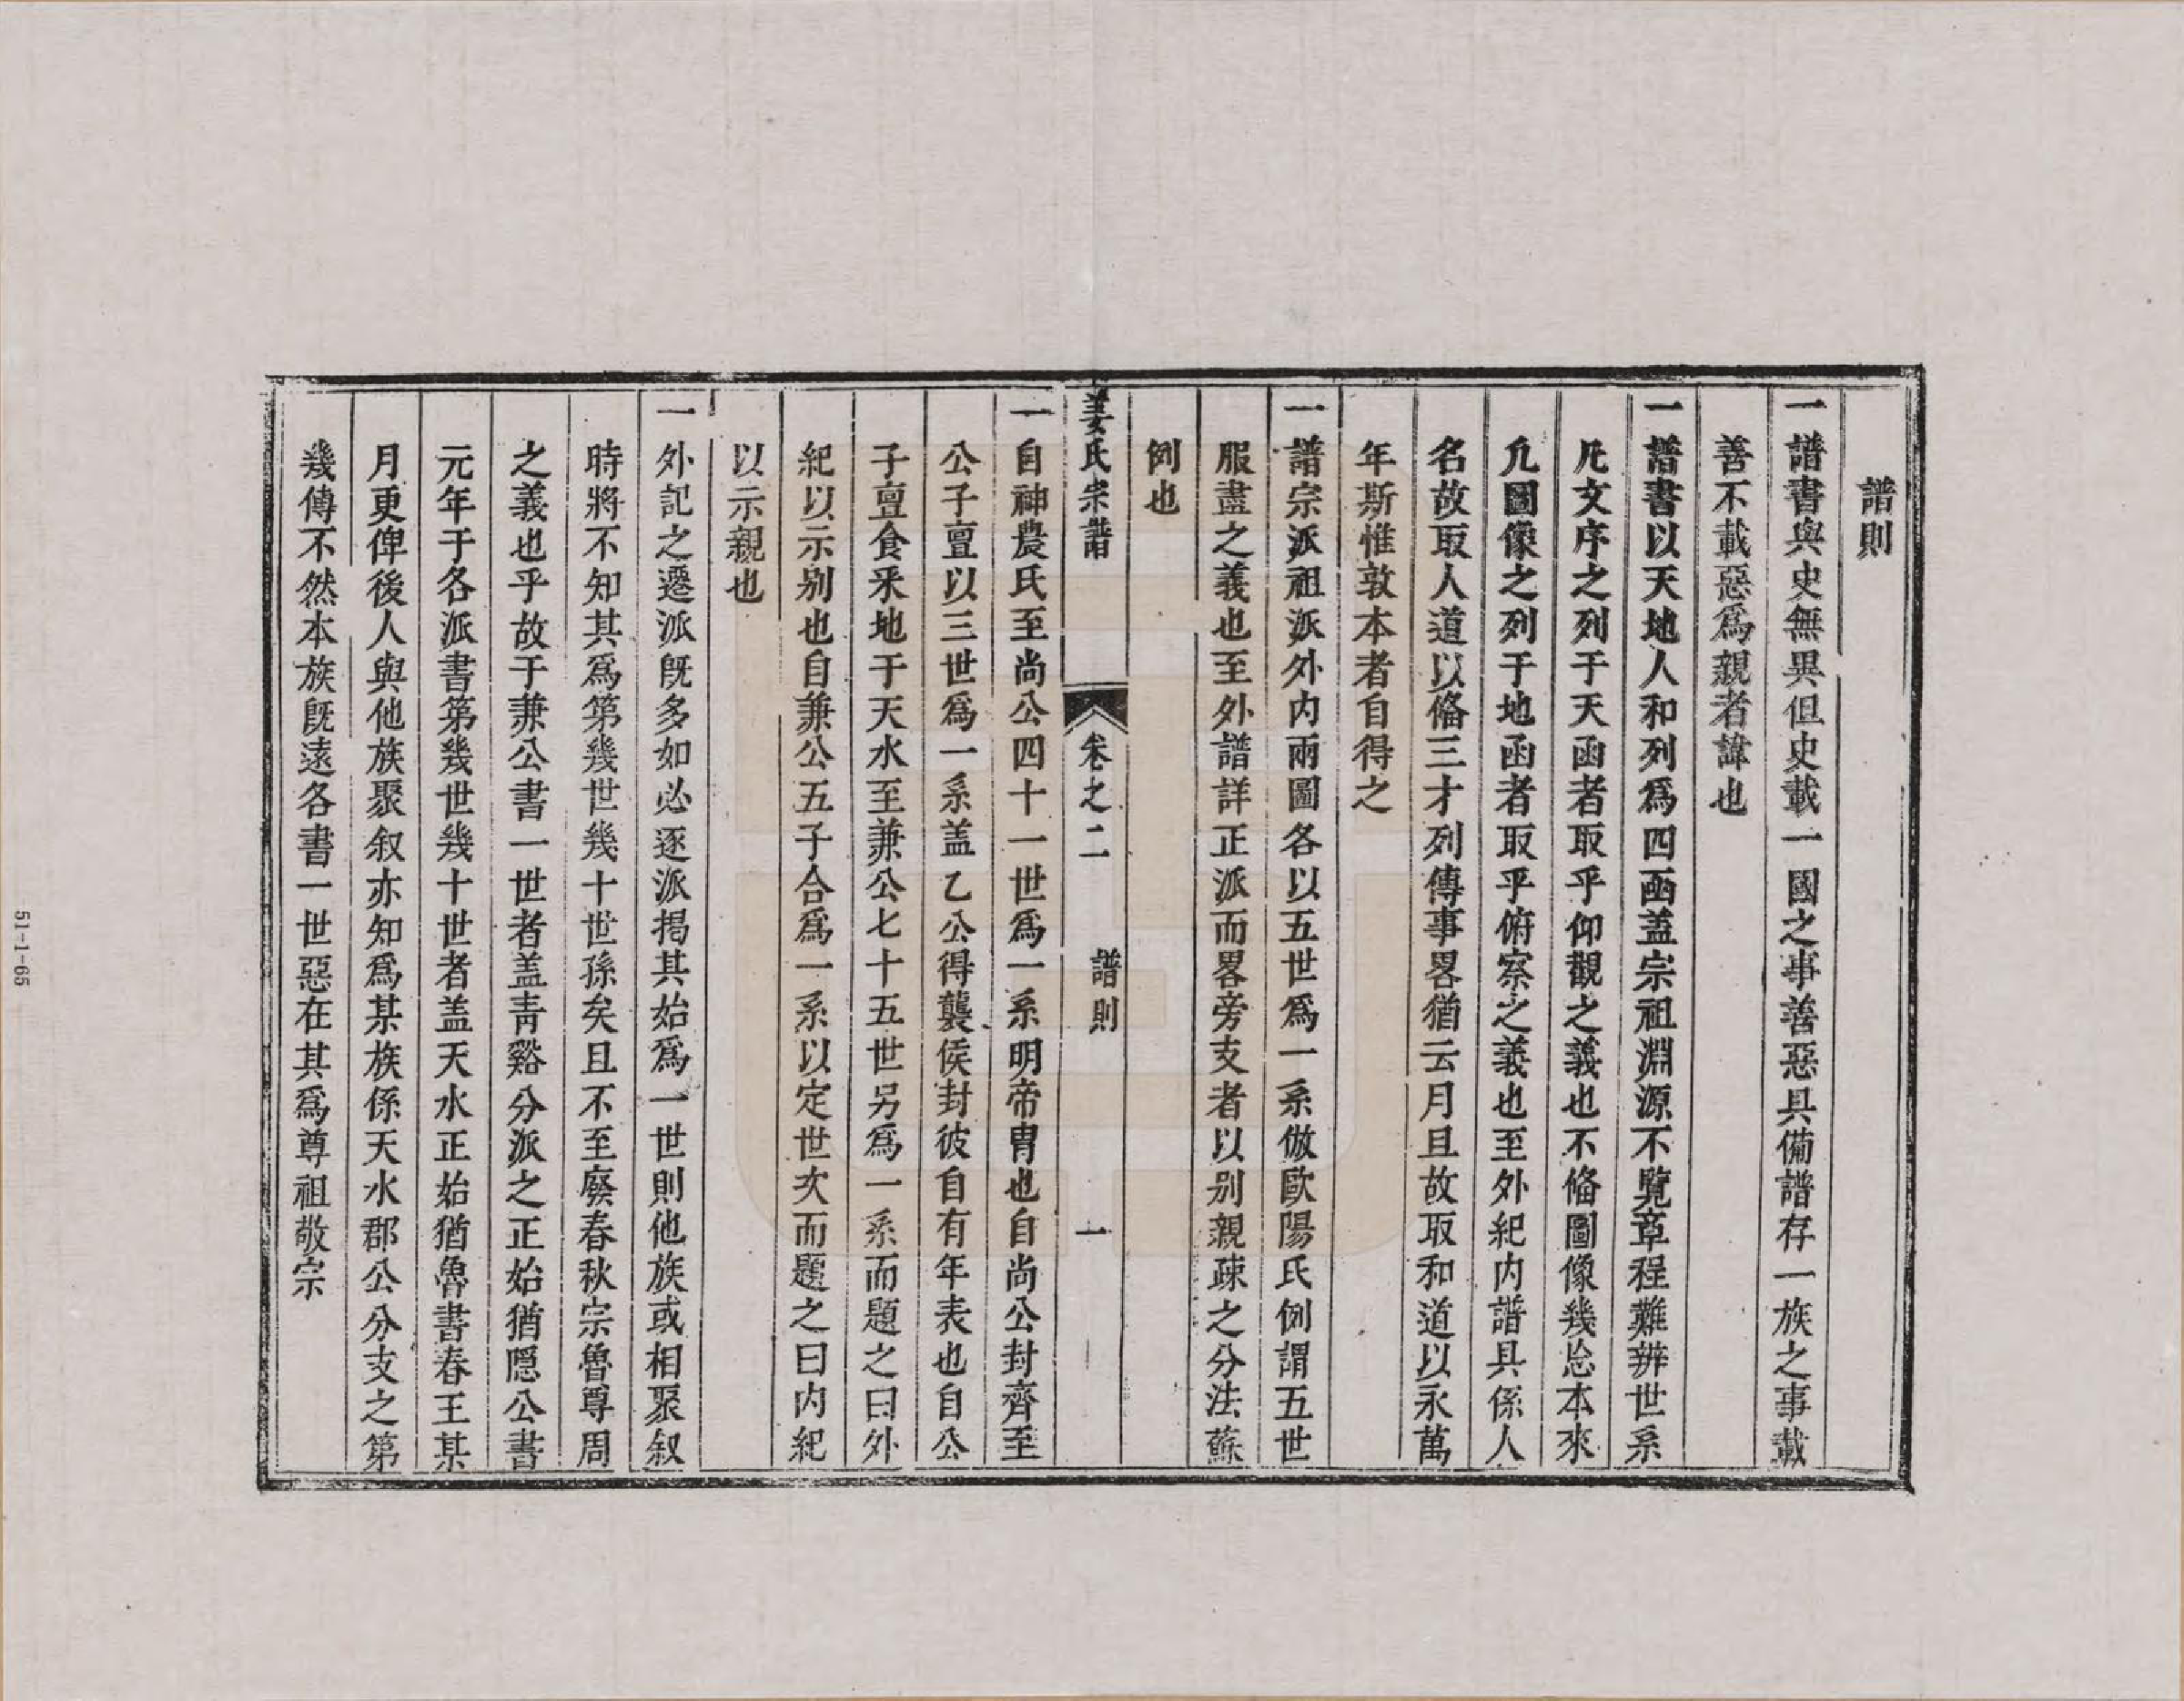 譜則
一譜書與史無異但史載一國之事善惡具備譜存一族之事載
善不載惡爲親者諱也
一譜書以天地人和列爲四函盖宗祖淵源不覽章程難辨世系
凡文序之列于天函者取乎仰觀之義也不脩圖像幾忘本來
凡圖像之列于地函者取乎俯察之義也至外紀内譜具係人
名故取人道以脩三才列傳事畧猶云月且故取和道以永萬
年斯惟敦本者自得之
一譜宗派祖派外内兩圖各以五世爲一系倣歐陽氏例謂五世
服盡之義也至外譜詳正派而畧旁支者以别親疎之分法蘇
例也
姜氏宗譜 卷之二 譜則 一
一自神農氏至尚公四十一世爲一系明帝胄也自尚公封齊至
公子亶以三世爲一系盖乙公得襲侯封彼自有年表也自公
子亶食采地于天水至兼公七十五世另爲一系而題之曰外
紀以示别也自兼公五子合爲一系以定世次而題之曰内紀
以示親也
一外記之遷派旣多如必逐派揭其始爲一世則他族或相聚叙
時將不知其爲第幾世幾十世孫矣且不至廢春秋宗魯尊周
之義也乎故于兼公書一世者盖青谿分派之正始猶隠公書
元年于各派書第幾世幾十世者盖天水正始猶魯書春王某
月更俾後人與他族聚叙亦知爲某族係天水郡公分支之第
幾傳不然本族旣遠各書一世惡在其爲尊祖敬宗
51-1-65